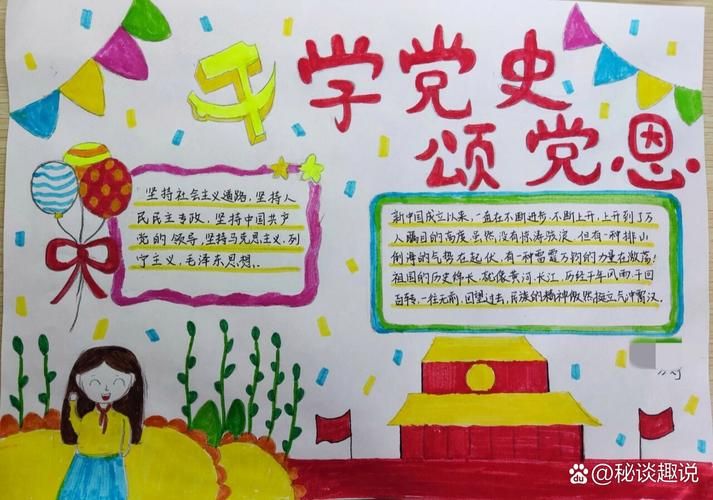 学党史
颂党恩
坚持社会主义道路,坚持人
民民主专政,坚持中国共产
党的领导,坚持马克思主义,列
宁主义,毛泽东思想.
新中国成立以来,一直在不断进步,不断上升,上升到了万
人瞩目的高度.虽然,没有惊涛骇浪.但有一种排山
倒海的气势在起伏,有一种雷霆万钧的力量在激荡!
祖国的历史绵长,就像黄河,长江,历经千年风雨,千回
百转,一往无前,回望过去,民族的精神傲然挺立气冲霄汉.
du @秘谈趣说